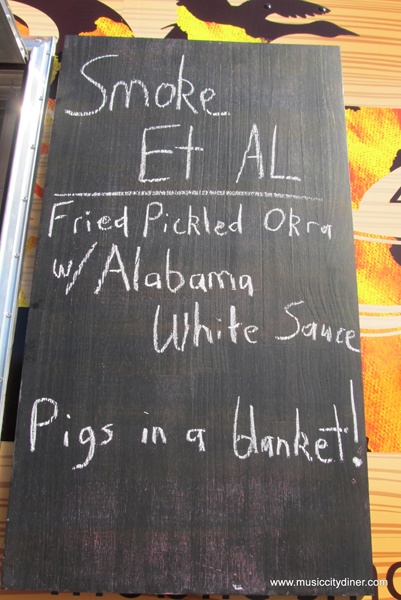 Smoke
Et AL
Fried Pickled Okra
w/Alabama
White Sauce
Pigs in a blanket!
www.musiccitydiner.com